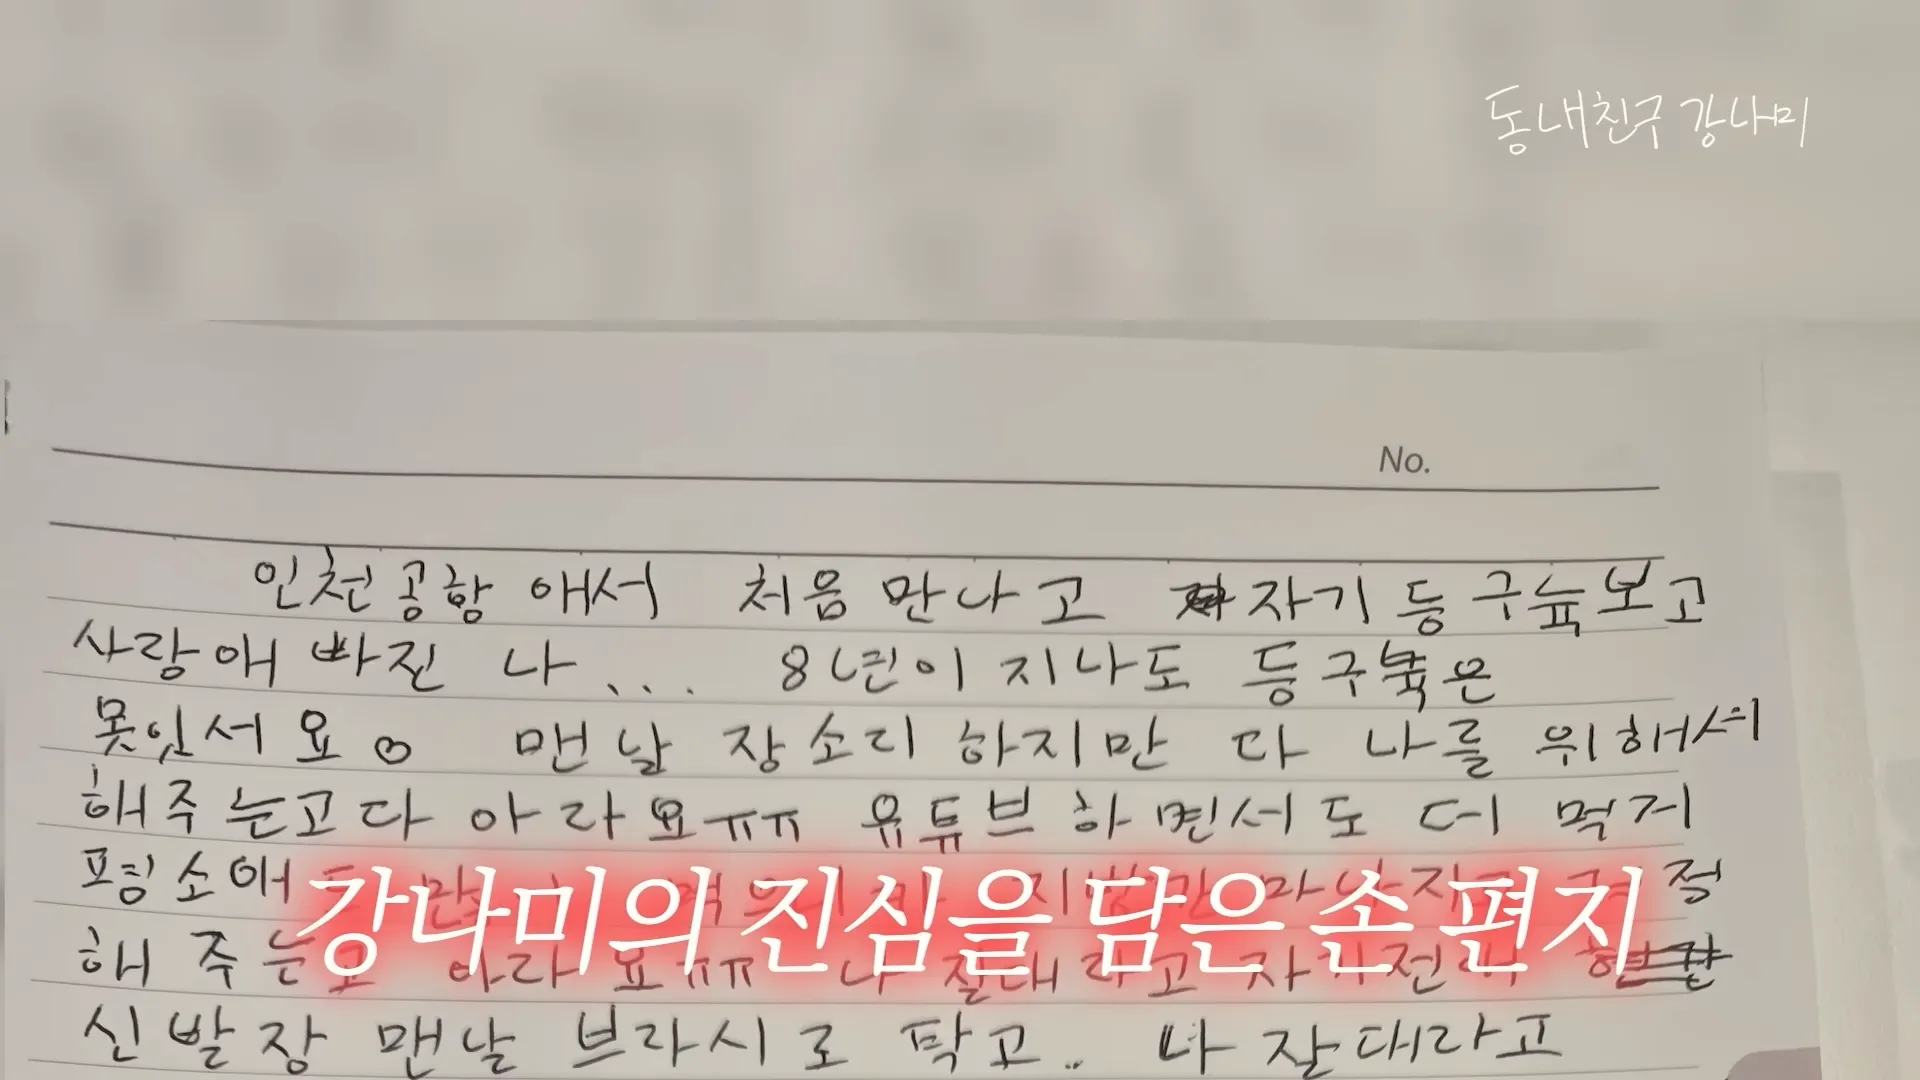 동네친구 강나미
No.
인천공항 애서 처음 만나고 자기 등구늌보고
사랑애 빠진 나... 8년이 지나도 등구뉵은
못잇서요。 맨날 장소리 하지만 다 나를 위해서
해주는고다 아라요ㅠㅠ 유튜브 하면서도 더 먹거
핑소애
강나미의 진심을 담은 손 편지
해 주는고 아라요ㅠㅠ 나
신발장 맨날 브라시로 닦고.. 나 잘대라고